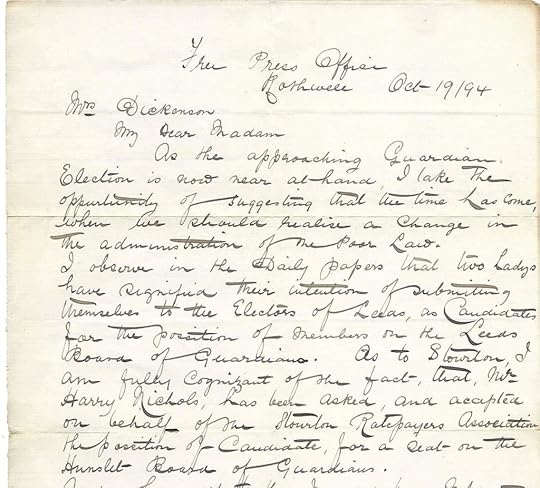 Free Press Office
Rothwell Oct 19/94
Mrs Dickenson
My Dear Madam
As the approaching Guardian
Election is now near at hand, I take the
oppurtunity of suggesting that the time has come,
when we should realise a change in
the administration of the Poor Law.
I observe in the Daily papers that two Ladys
have signifid their intention of submitting
themselves to the Electors of Leeds, as Candidates
for the position of members on the Leeds
Board of Guardians. As to Stourton, I
am fully Cognizant of the fact, that, Mr
Harry Nichols, has been asked, and accepted
on behalf of the Stourton Ratepayers Association
the position of Candidate, for a seat on the
Hunslet Board of Guardians.